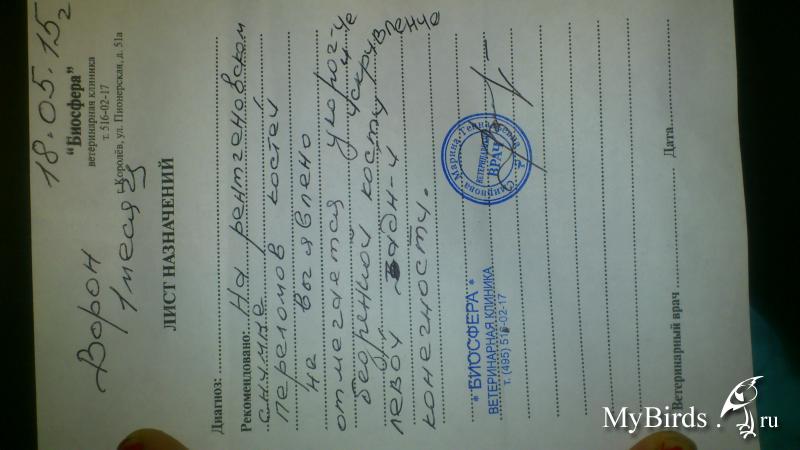 18.05.15г
"Биосфера"
ветеринарная клиника
т. 516-02-17
г. Королёв, ул. Пионерская, д. 51а
Ворон
1 месяц
ЛИСТ НАЗНАЧЕНИЙ
Диагноз:
Рекомендовано: На рентгеновском
снимке
переломов костей
не выявлено
отмечается укороч-е
бедренной кости и
левой задн-й
конечности.
* БИОСФЕРА *
ВЕТЕРИНАРНАЯ КЛИНИКА
т. (495) 516-02-17
Смирнова Марина Геннадьевна
ВЕТЕРИНАРНЫЙ
ВРАЧ
Ветеринарный врач Дата
MyBirds.ru